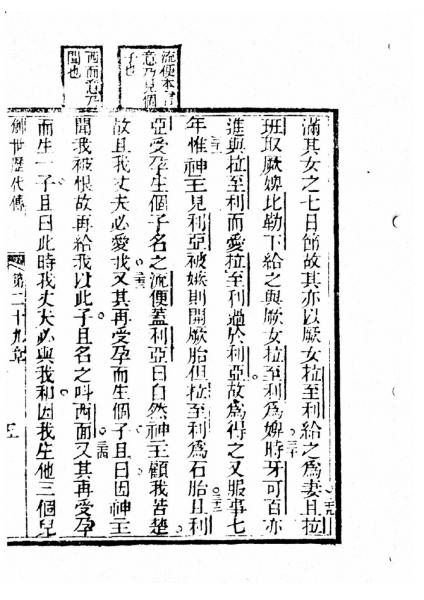 流便本言
意乃見個
子也
西面意乃
聞也
滿其女之七日節故其亦以厥女拉至利給之爲妻二九且拉
班取厥婢比勒下給之與厥女拉至利爲婢三十時牙可百亦
進與拉至利而愛拉至利過於利亞故爲得之又服事七
年三一惟神主見利亞被嫉則開厥胎但拉至利爲石胎三二且利
亞受孕生個子名之流便蓋利亞曰自然神主顧我苦楚
故且我丈夫必愛我三三又其再受孕而生個子且曰因神主
聞我被恨故再給我以此子且名之呌西面三四又其再受孕
而生一子且曰此時我丈夫必與我和因我生他三個兒
創世歷代傳 第二十九章